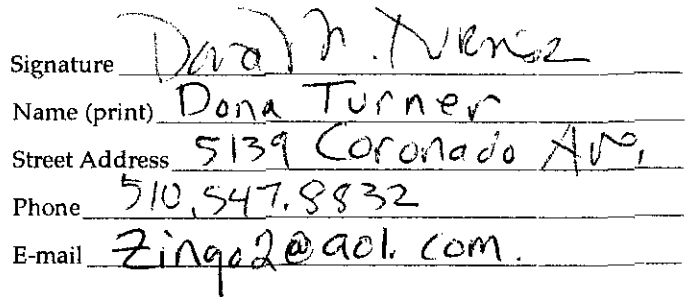 Signature Dona M. Turner
Name (print) Dona Turner
Street Address 5139 Coronado Ave,
Phone 510.547.8832
E-mail Zingo2@aol.com.